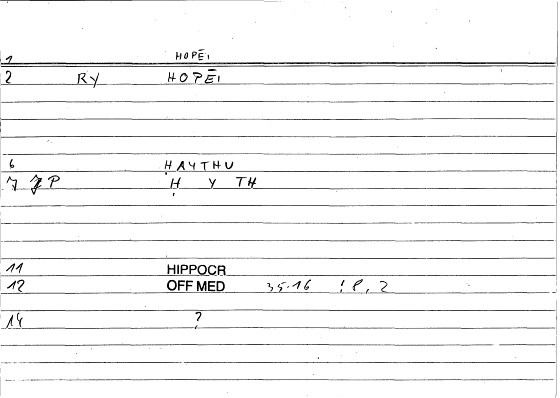 1 HOPĒI
2 RY HOPĒI
6 ḤAYTHU
7 P Ḥ Y TH
11 HIPPOCR
12 OFF MED 35.16 ! P, 2
14 ?